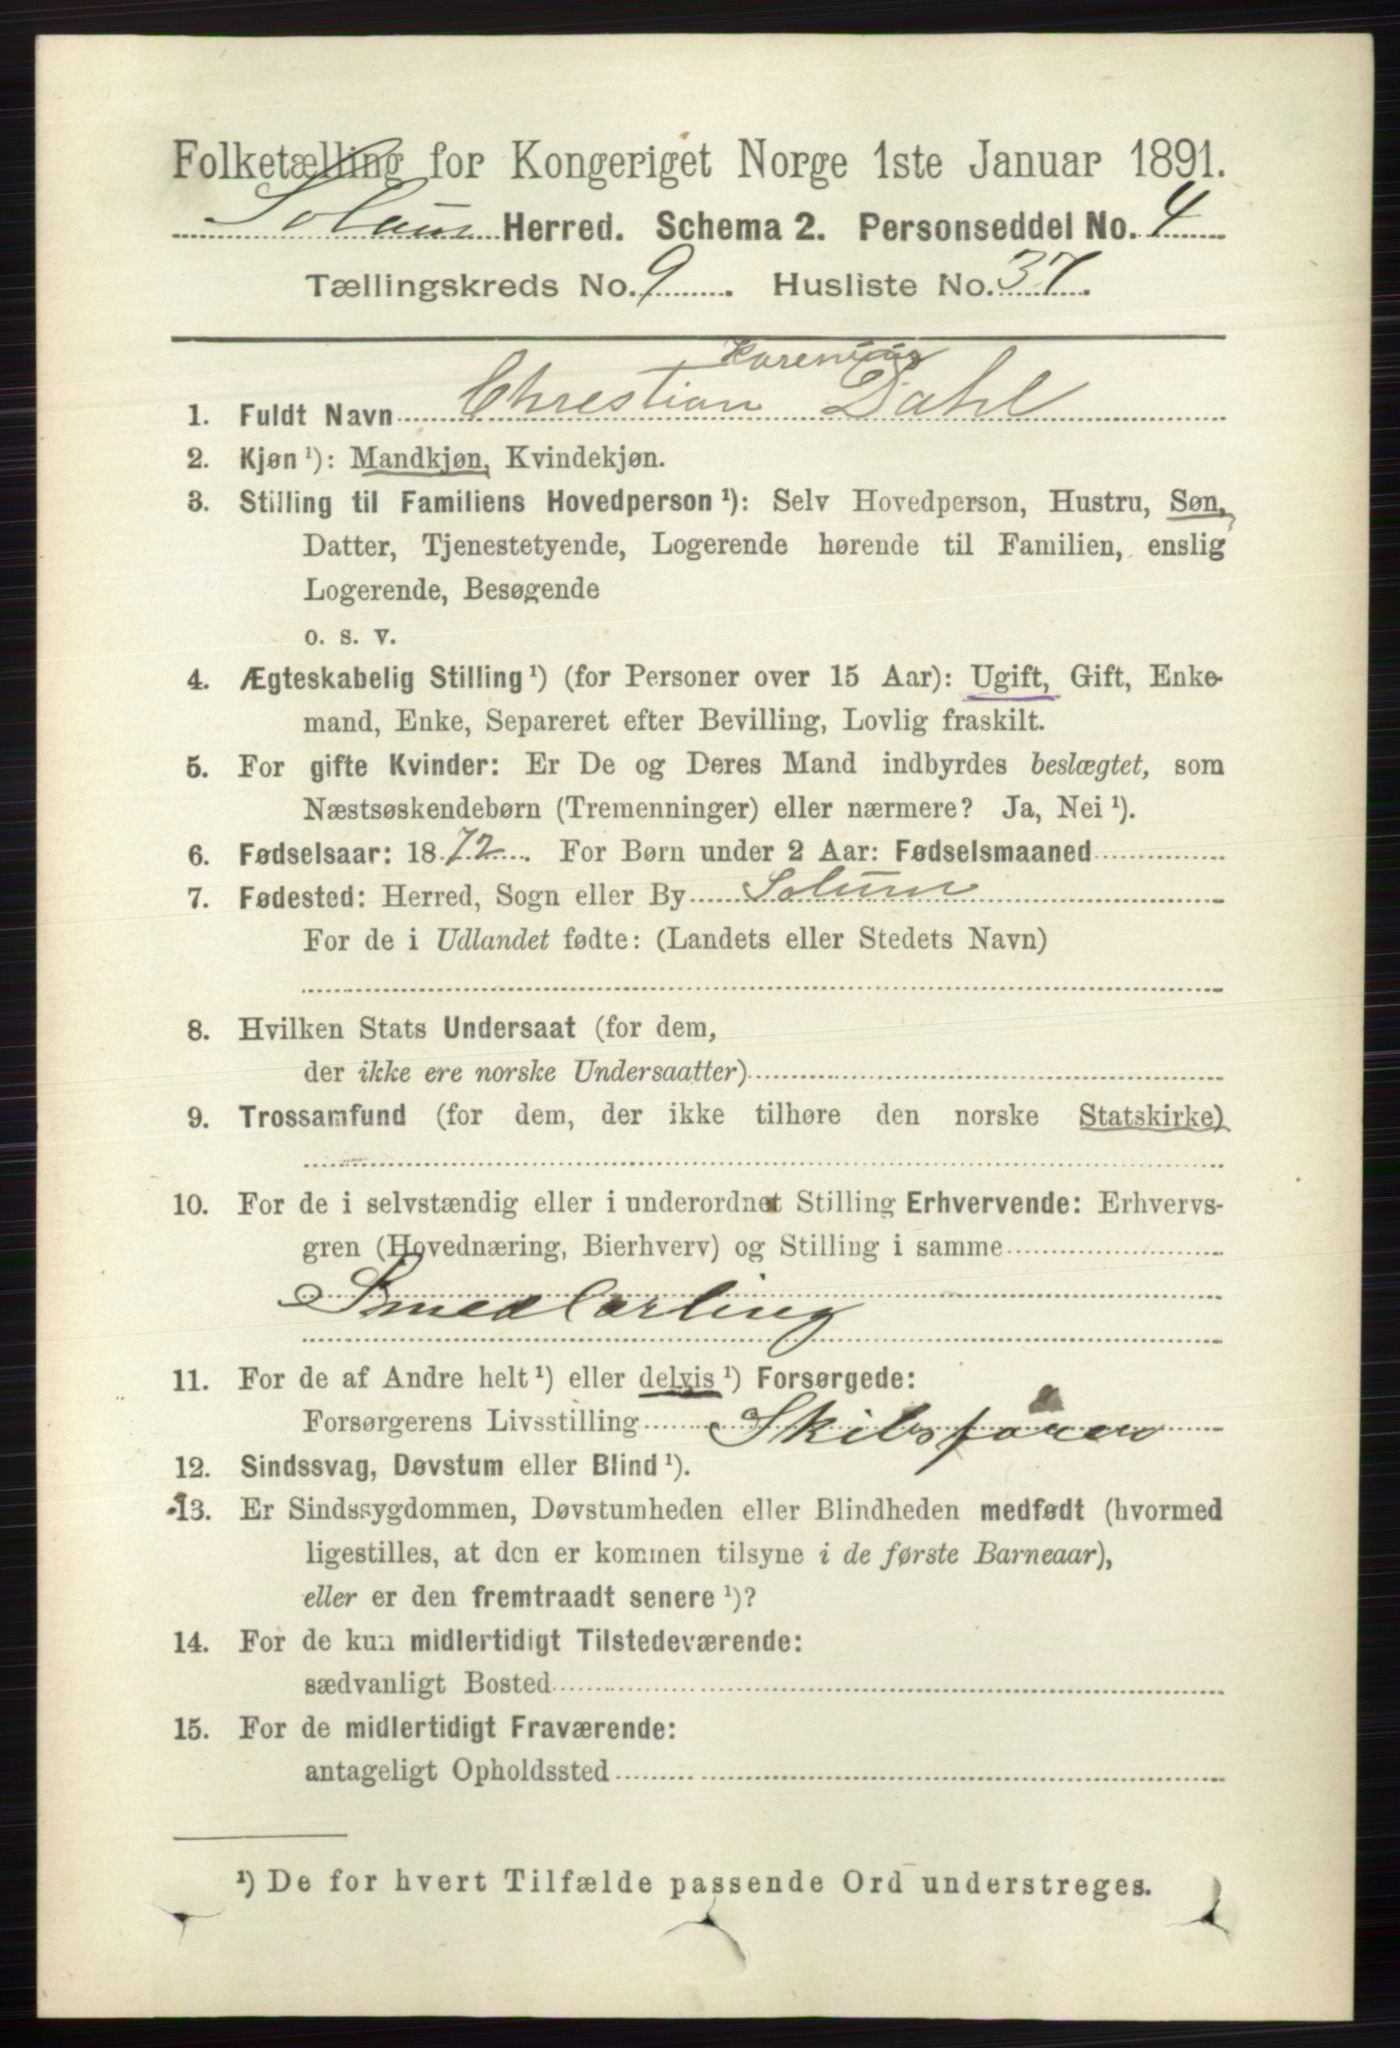 Folketælling for Kongeriget Norge 1ste Januar 1891.
Solum Herred. Schema 2. Personseddel No. 4
Tællingskreds No. 9. Husliste No. 37.
Karenius
1. Fuldt Navn Chrestian Dahl
2. Kjøn ¹): Mandkjøn, Kvindekjøn.
3. Stilling til Familiens Hovedperson ¹): Selv Hovedperson, Hustru, Søn,
Datter, Tjenestetyende, Logerende hørende til Familien, enslig
Logerende, Besøgende
o. s. v.
4. Ægteskabelig Stilling ¹) (for Personer over 15 Aar): Ugift, Gift, Enke-
mand, Enke, Separeret efter Bevilling, Lovlig fraskilt.
5. For gifte Kvinder: Er De og Deres Mand indbyrdes beslægtet, som
Næstsøskendebørn (Tremenninger) eller nærmere? Ja, Nei ¹).
6. Fødselsaar: 1872. For Børn under 2 Aar: Fødselsmaaned
7. Fødested: Herred, Sogn eller By Solum
For de i Udlandet fødte: (Landets eller Stedets Navn)
8. Hvilken Stats Undersaat (for dem,
der ikke ere norske Undersaatter)
9. Trossamfund (for dem, der ikke tilhøre den norske Statskirke)
10. For de i selvstændig eller i underordnet Stilling Erhvervende: Erhvervs-
gren (Hovednæring, Bierhverv) og Stilling i samme
Smedlærling
11. For de af Andre helt ¹) eller delvis ¹) Forsørgede:
Forsørgerens Livsstilling Skibsfører
12. Sindssvag, Døvstum eller Blind ¹).
13. Er Sindssygdommen, Døvstumheden eller Blindheden medfødt (hvormed
ligestilles, at den er kommen tilsyne i de første Barneaar),
eller er den fremtraadt senere ¹)?
14. For de kun midlertidigt Tilstedeværende:
sædvanligt Bosted
15. For de midlertidigt Fraværende:
antageligt Opholdssted
¹) De for hvert Tilfælde passende Ord understreges.